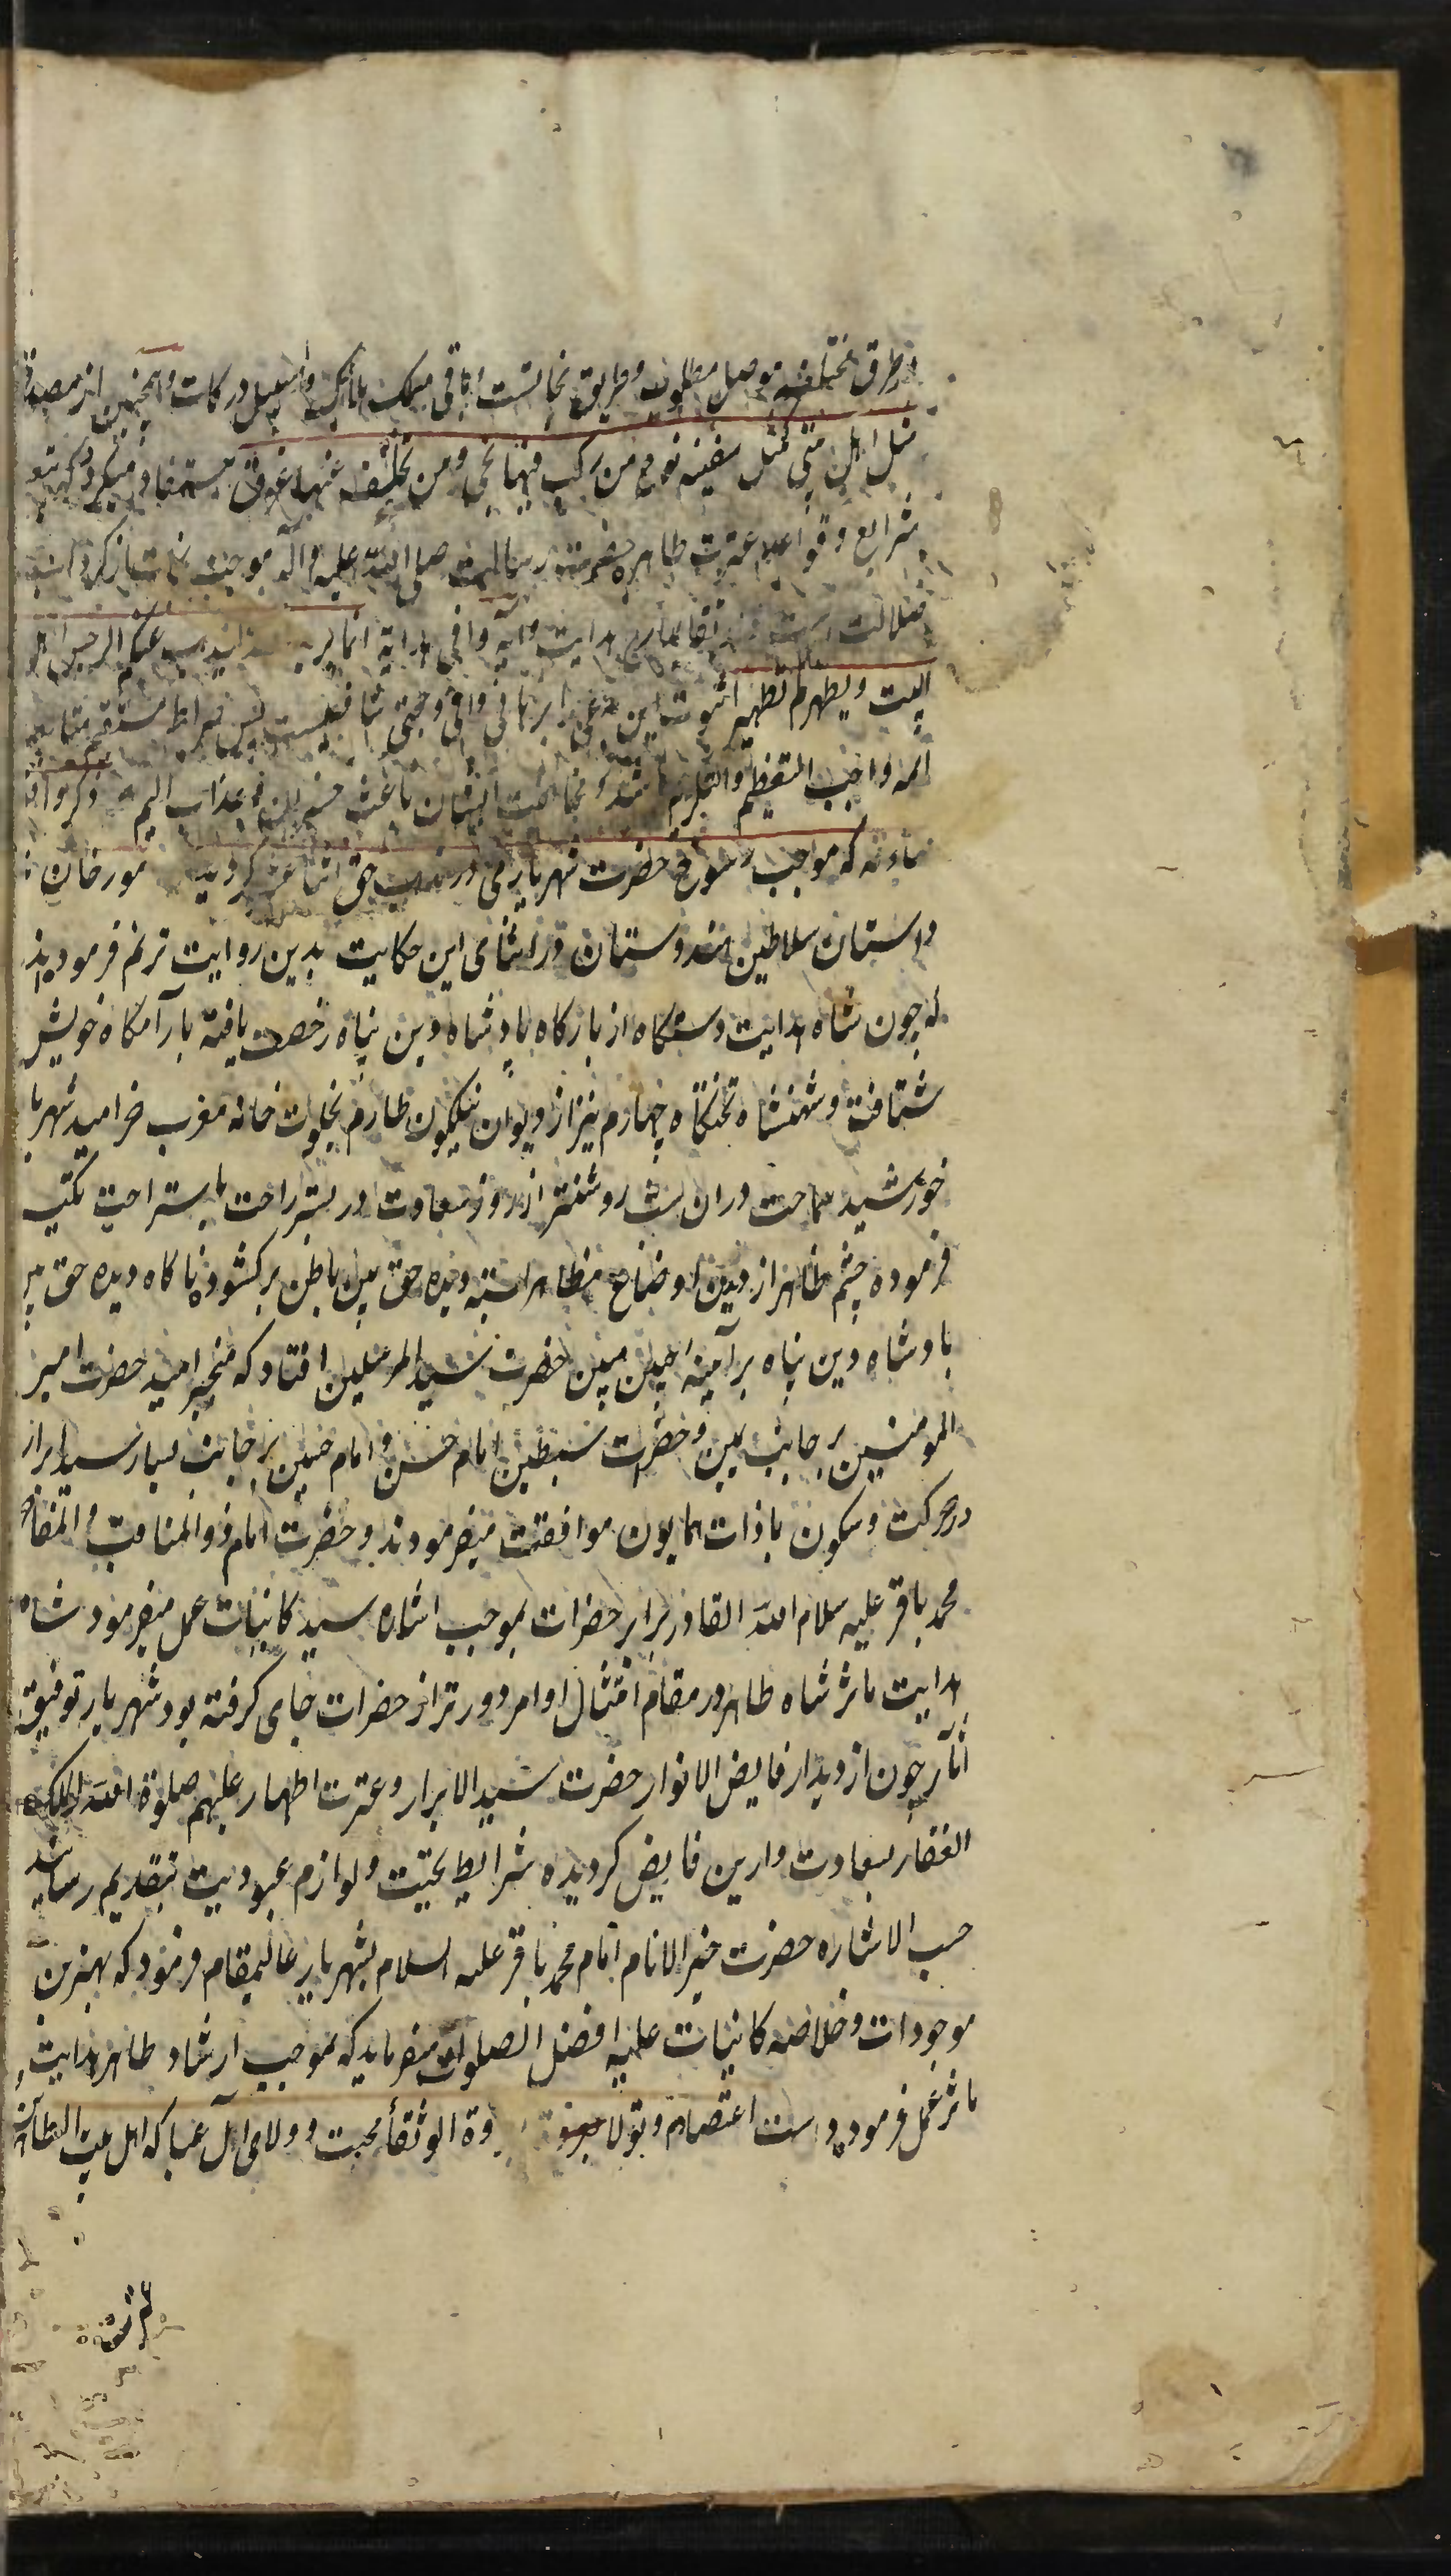 و طرق مختلفه موصل مطلوب و طریق نجاتست و باقی مسلک مهالک و سبیل درکات و همچنین از مصدوقه
مثل اهل بیتی کمثل سفینه نوح من رکب فیها نجی و من تخلف عنها غرق مستفاد میگردد که تتبع
شرایع و قواعد عترت طاهره حضرت رسالت صلی الله علیه و آله موجب نجات از کرداب
ضلالت است هدایت و آیه وافی هدایة انما یرید الله لیذهب عنکم الرجس اهل
البیت و یطهرکم تطهیرا ثبوت این مدعی را برهانی وافی و حجتی شافیست پس صراط مستقیم متابعت
ائمه واجب التعظیم والتکریم باشد و مخالفت ایشان باعث خسران و عذاب الیم ذکر واقعه
که موجب رسوخ حضرت شهریاری در مذهب حق اثنا عشر کردید مورخان
داستان سلاطین هندوستان در اثنای این حکایت بدین روایت ترنم فرموده‌اند
که چون شاه هدایت دستکاه از بارکاه پادشاه دین پناه رخصت یافته بارامکاه خویش
شتافت و شهنشاه تختکاه چهارم نیز از دیوان نیلکون طارم بخلوت خانه مغرب خرامید شهریار
خورشید سماحت دران شب روشنتر از روز سعادت در بستر راحت باستراحت تکیه
فرموده چشم ظاهر از دیدن اوضاع مظاهر بسته دیده حق بین باطن برکشود ناکاه دیده حق بین
پادشاه دین پناه بر آینه جبین مبین حضرت سید المرسلین افتاد که حضرت امیر
المومنین بر جانب یمین و حضرت سبطین امام حسن و امام حسین بر جانب یسار سید ابرار
در حرکت و سکون با ذات همایون موافقت میفرمودند و حضرت امام ذوالمناقب والمفاخر
محمد باقر علیه سلام الله القادر برابر حضرات بموجب اشاره سید کاینات عمل میفرمود شاه
هدایت ماثر شاه طاهر در مقام امتثال اوامر دورتر از حضرات جای کرفته بود شهریار توفیق
آثار چون از دیدار فایض الانوار حضرت سید الابرار و عترت اطهار علیهم صلوة الله الملک
الغفار بسعادت دارین فایض کردیده شرایط تحیت و لوازم عبودیت بتقدیم رسانید
حسب الاشاره حضرت خیر الانام امام محمد باقر علیه السلام بشهریار عالیمقام فرمود که بهترین
موجودات و خلاصه کاینات علیه افضل الصلوات میفرماید که بموجب ارشاد طاهر هدایت
ماثر عمل فرموده دست اعتصام و تولا وة الوثقا محبت و ولای آل عبا که اهل بیت الطاهرین